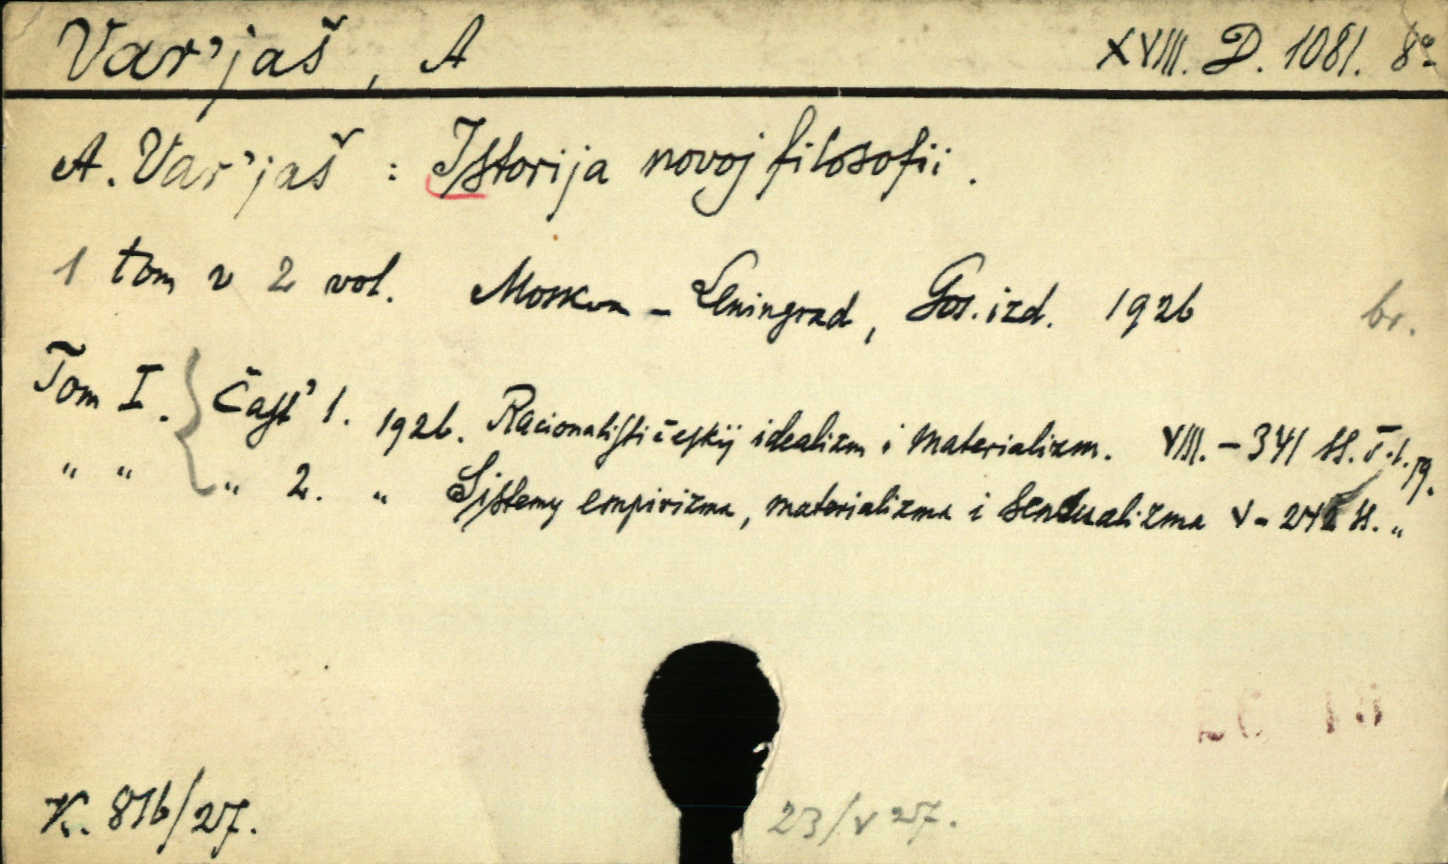 Var'jaš, A XVIII. D. 1081. 8°
A. Var'jaš : Istorija novoj filosofii.
1 tom v 2 vol. Moskva - Leningrad, Gos. izd. 1926 br.
Tom I. Čast' 1. 1926. Racionalističeskij idealizm i materializm. VIII. - 341 ss.
" " " 2. " Sistemy empirizma, materializma i sensualizma V - 242 ss. "
K. 816/27. 23/V 27.